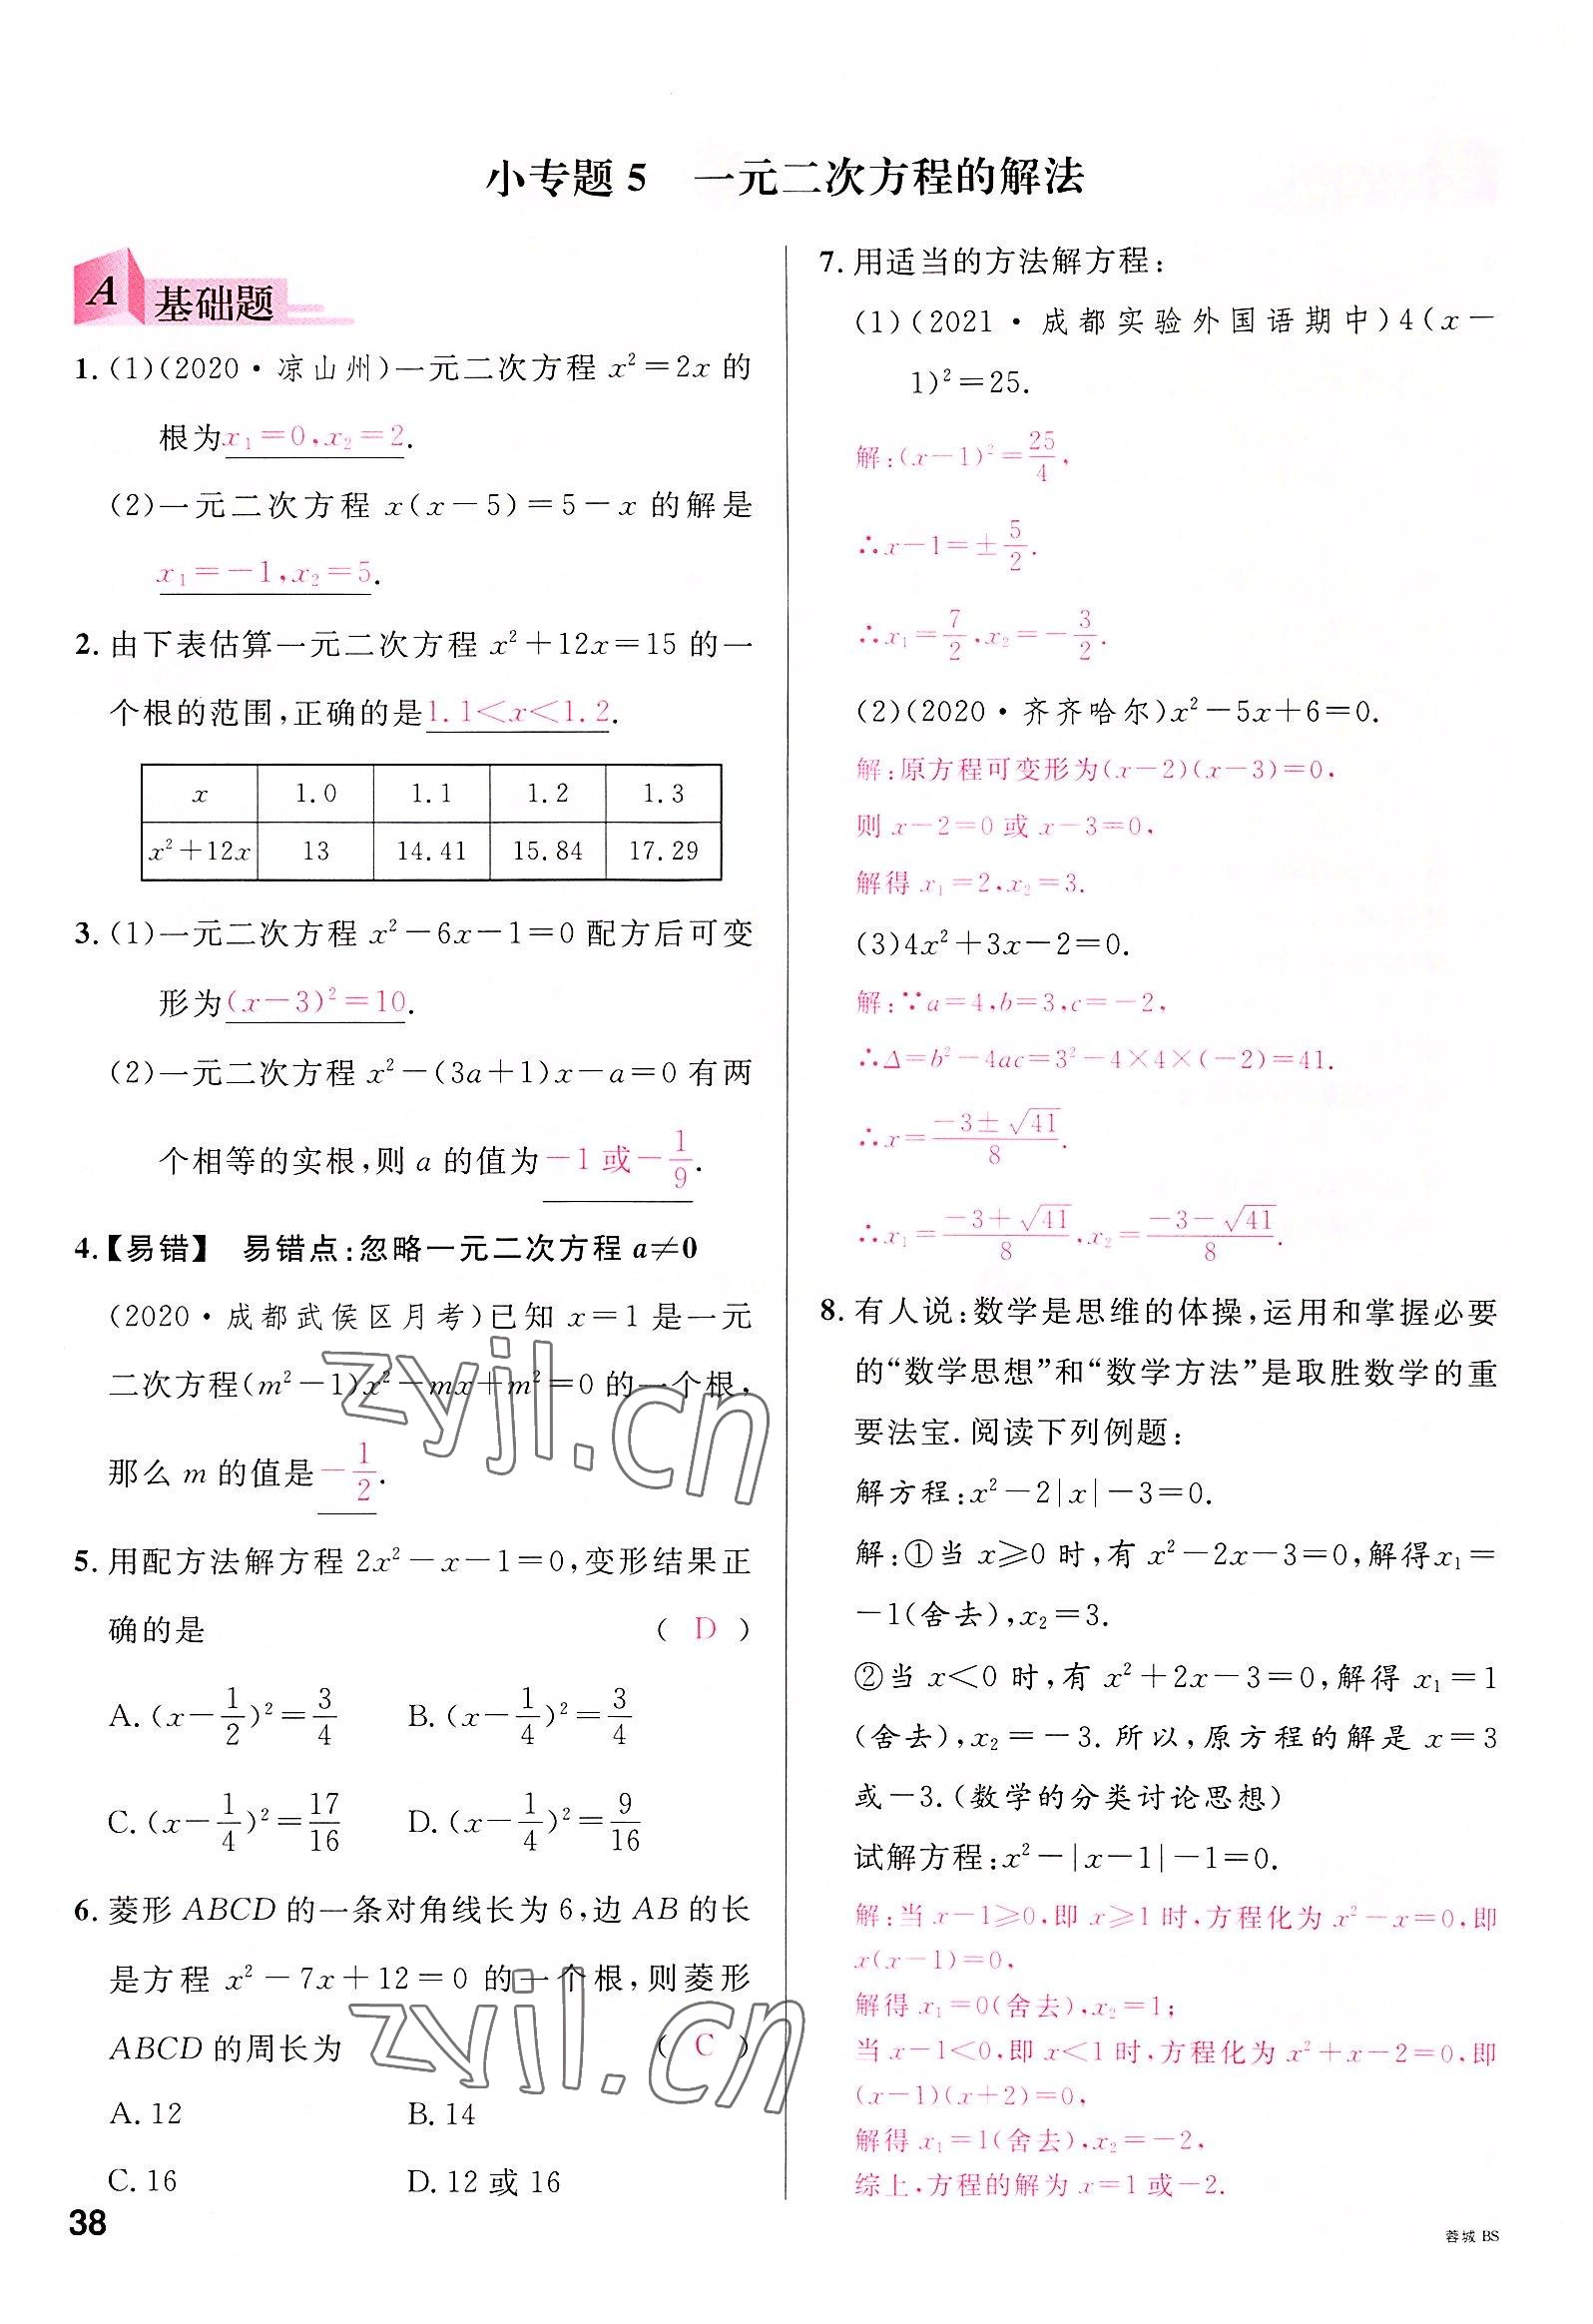 小专题 5　一元二次方程的解法
A 基础题
1. (1)(2020·凉山州)一元二次方程 x²=2x 的
根为x₁=0,x₂=2.
(2)一元二次方程 x(x-5)=5-x 的解是
x₁=-1,x₂=5.
2. 由下表估算一元二次方程 x²+12x=15 的一
个根的范围,正确的是1.1<x<1.2.
x 1.0 1.1 1.2 1.3
x²+12x 13 14.41 15.84 17.29
3. (1)一元二次方程 x²-6x-1=0 配方后可变
形为(x-3)²=10.
(2)一元二次方程 x²-(3a+1)x-a=0 有两
个相等的实根,则 a 的值为-1 或-1/9.
4.【易错】 易错点:忽略一元二次方程 a≠0
(2020·成都武侯区月考)已知 x=1 是一元
二次方程(m²-1)x²-mx+m²=0 的一个根,
那么 m 的值是-1/2.
5. 用配方法解方程 2x²-x-1=0,变形结果正
确的是 ( D )
A. (x-1/2)²=3/4 B. (x-1/4)²=3/4
C. (x-1/4)²=17/16 D. (x-1/4)²=9/16
6. 菱形 ABCD 的一条对角线长为 6,边 AB 的长
是方程 x²-7x+12=0 的一个根,则菱形
ABCD 的周长为 ( C )
A. 12 B. 14
C. 16 D. 12 或 16
38
7. 用适当的方法解方程:
(1)(2021·成都实验外国语期中)4(x-
1)²=25.
解:(x-1)²=25/4,
∴x-1=±5/2.
∴x₁=7/2,x₂=-3/2.
(2)(2020·齐齐哈尔)x²-5x+6=0.
解:原方程可变形为(x-2)(x-3)=0,
则 x-2=0 或 x-3=0,
解得 x₁=2,x₂=3.
(3)4x²+3x-2=0.
解:∵a=4,b=3,c=-2,
∴Δ=b²-4ac=3²-4×4×(-2)=41.
∴x=(-3±√41)/8.
∴x₁=(-3+√41)/8,x₂=(-3-√41)/8.
8. 有人说:数学是思维的体操,运用和掌握必要
的“数学思想”和“数学方法”是取胜数学的重
要法宝.阅读下列例题:
解方程:x²-2|x|-3=0.
解:①当 x≥0 时,有 x²-2x-3=0,解得x₁=
-1(舍去),x₂=3.
②当 x<0 时,有 x²+2x-3=0,解得 x₁=1
(舍去),x₂=-3.所以,原方程的解是 x=3
或-3.(数学的分类讨论思想)
试解方程:x²-|x-1|-1=0.
解:当 x-1≥0,即 x≥1 时,方程化为 x²-x=0,即
x(x-1)=0,
解得 x₁=0(舍去),x₂=1;
当 x-1<0,即 x<1 时,方程化为 x²+x-2=0,即
(x-1)(x+2)=0,
解得 x₁=1(舍去),x₂=-2,
综上,方程的解为 x=1 或-2.
蓉城 BS
zyjl.cn
zyjl.cn